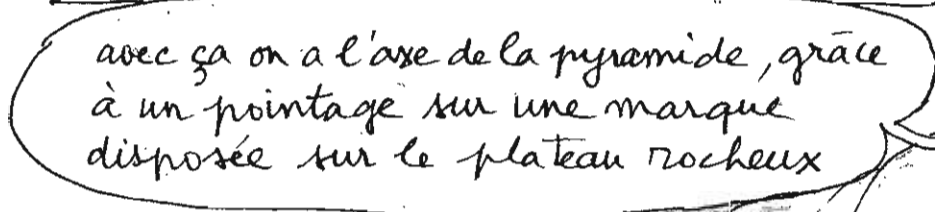 avec ça on a l'axe de la pyramide, grâce
à un pointage sur une marque
disposée sur le plateau rocheux